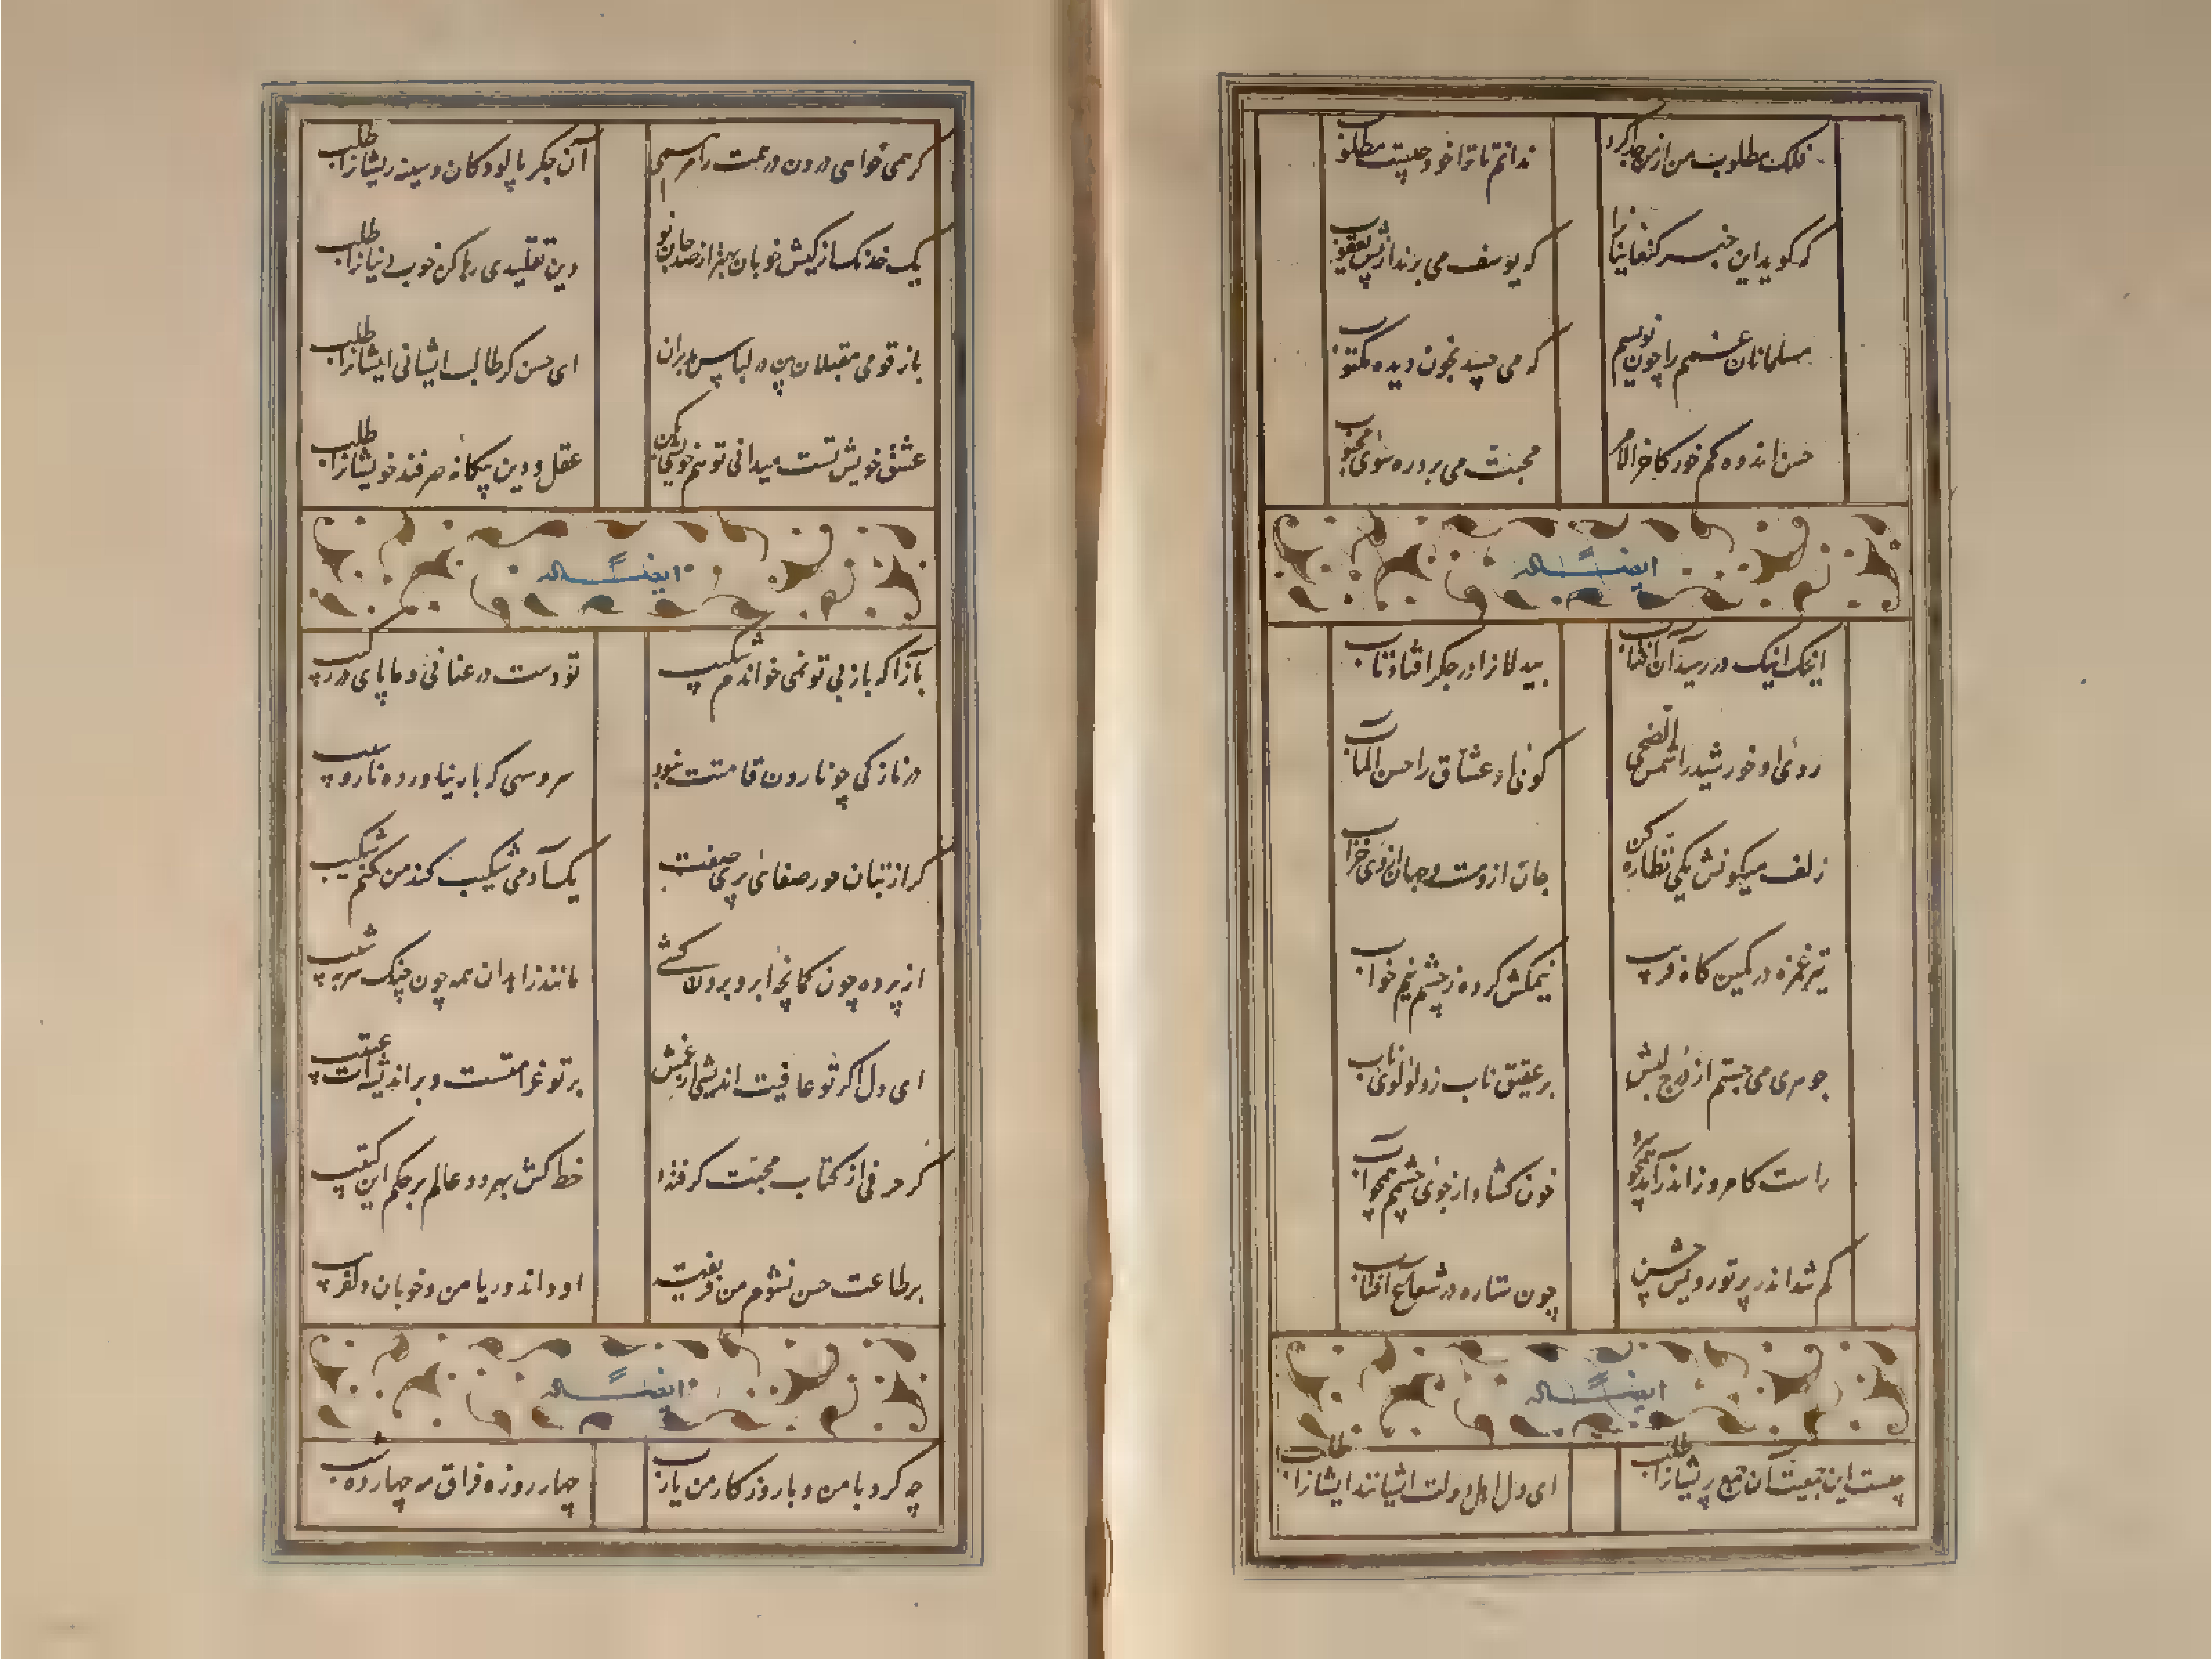 فلک مطلوب من از من جدا کرد ندانم تا ترا خود چیست مطلوب
که گوید این خبر کنعانیان را که یوسف می برند از پیش یعقوب
مسلمانان غمم را چون نویسم که می چسپد بخون دیده مکتوب
حسن اندوه کم خور کاخر الامر محبت می برد ره سوی محبوب
ایضاً له
اینک اینک در رسید آن آفتاب بیدلانرا در جگر افتاد تاب
روی او خورشید را شمس الضحی کوی او عشاق را حسن المآب
زلف میگونش یکی نظاره کن جان ازو مست و جهان از وی خراب
تیر غمزه در کمین گاه فریب نیمکش کرده ز چشم نیم خواب
جوهری می جستم از درج لبش بر عقیق ناب زد لولوی ناب
راست کامروز اندر آمد همچو سرو خون کشاد از جوی چشمم همچو آب
گم شد اندر پرتو رویش حسن چون ستاره در شعاع آفتاب
ایضاً له
چیست این تبعیتشان تبع پریشانرا طلب ای دل اهل دولت ایشانند ایشانرا طلب
گر همی خواهی درون درعت را مرهمی آن جگر پالودگان و سینه ریشانرا طلب
یک خدنگ از کیش خوبان بهتر از صد جان تو دین تقلیدی رها کن خوب دینانرا طلب
باز قومی مقبلان بین در لباس مدبران ای حسن گر طالب ایشانی ایشانرا طلب
عشق خویش تست میدانی تو هم خویشی بکن عقل و دین بیگانه صرفند خویشانرا طلب
ایضاً له
بازآ که باز بی تو نمی خواندم شکیب تو دست در عنانی و ما پای در رکیب
در نازکی چو نارون قامتت نبود سروسی که بار نیاورده نار و سیب
گر از بتان حور صفای پری صفت یکس آدمی شکیب کند من کنم شکیب
از پرده چون کمانچه ابرو برون کشی مانند زاهدان همه چون چنگ سر بشیب
ای دل اگر تو عافیت اندیشی از غمش بر تو غرامتست و بر اندیشه ات عتیب
گر حرفی از کتاب محبت گرفته‌ا خط کش بهر دو عالم بر حکم این کتیب
بر طاعت حسن نشوم من فریفت او داند و ریا من و خوبان دلفریب
ایضاً له
چه کرد با من و با روزگار من یارب چهار روزه فراق مه چهارده شب